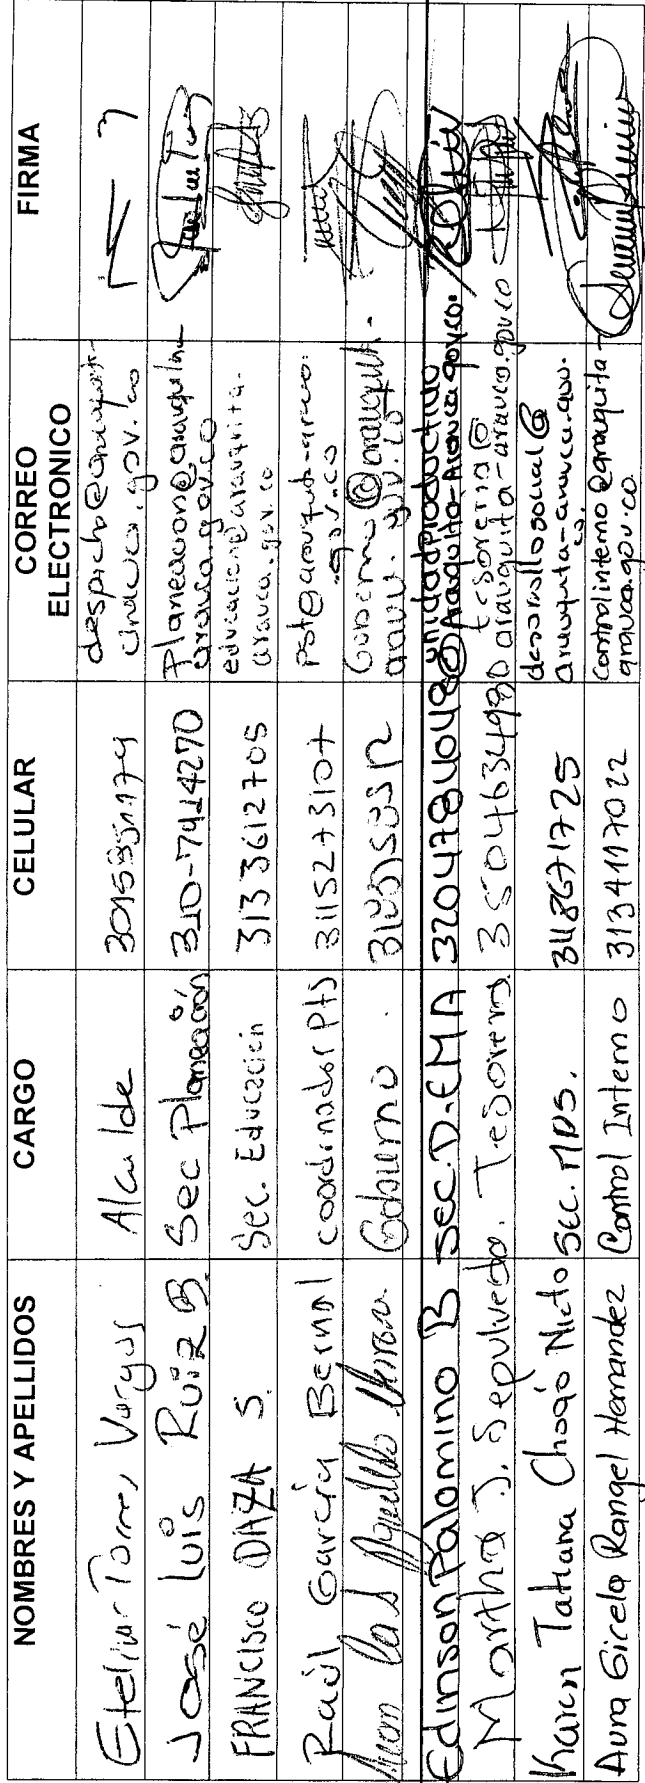 NOMBRES Y APELLIDOS CARGO CELULAR CORREO ELECTRONICO FIRMA
Etelivar Torres Vargas Alcalde despacho@arauquita-
arauca.gov.co
José Luis Ruiz B. Sec Planeación 310-7414270 Planeacion@arauquita-
arauca.gov.co
FRANCISCO DAZA S. Sec. Educación 3133612705 educacion@arauquita-
arauca.gov.co
Raúl García Bernal coordinador pts 3115273107
.gov.co
Gobierno Gobierno@arauquita-
Edinson Palomino B Sec. D. EMA 3204784048 unidadproductiva
@Arauquita-Arauca.gov.co.
Martha J. Sepulveda. Tesorera 3504634980 tesoreria@
arauquita-arauca.gov.co
Karen Tatiana Chogó Nieto Sec. MDS. 3118671725 desarrollosocial@
arauquita-arauca.gov.
co.
Aura Gicela Rangel Hernandez Control Interno 3134117022 controlinterno@arauquita-
arauca.gov.co